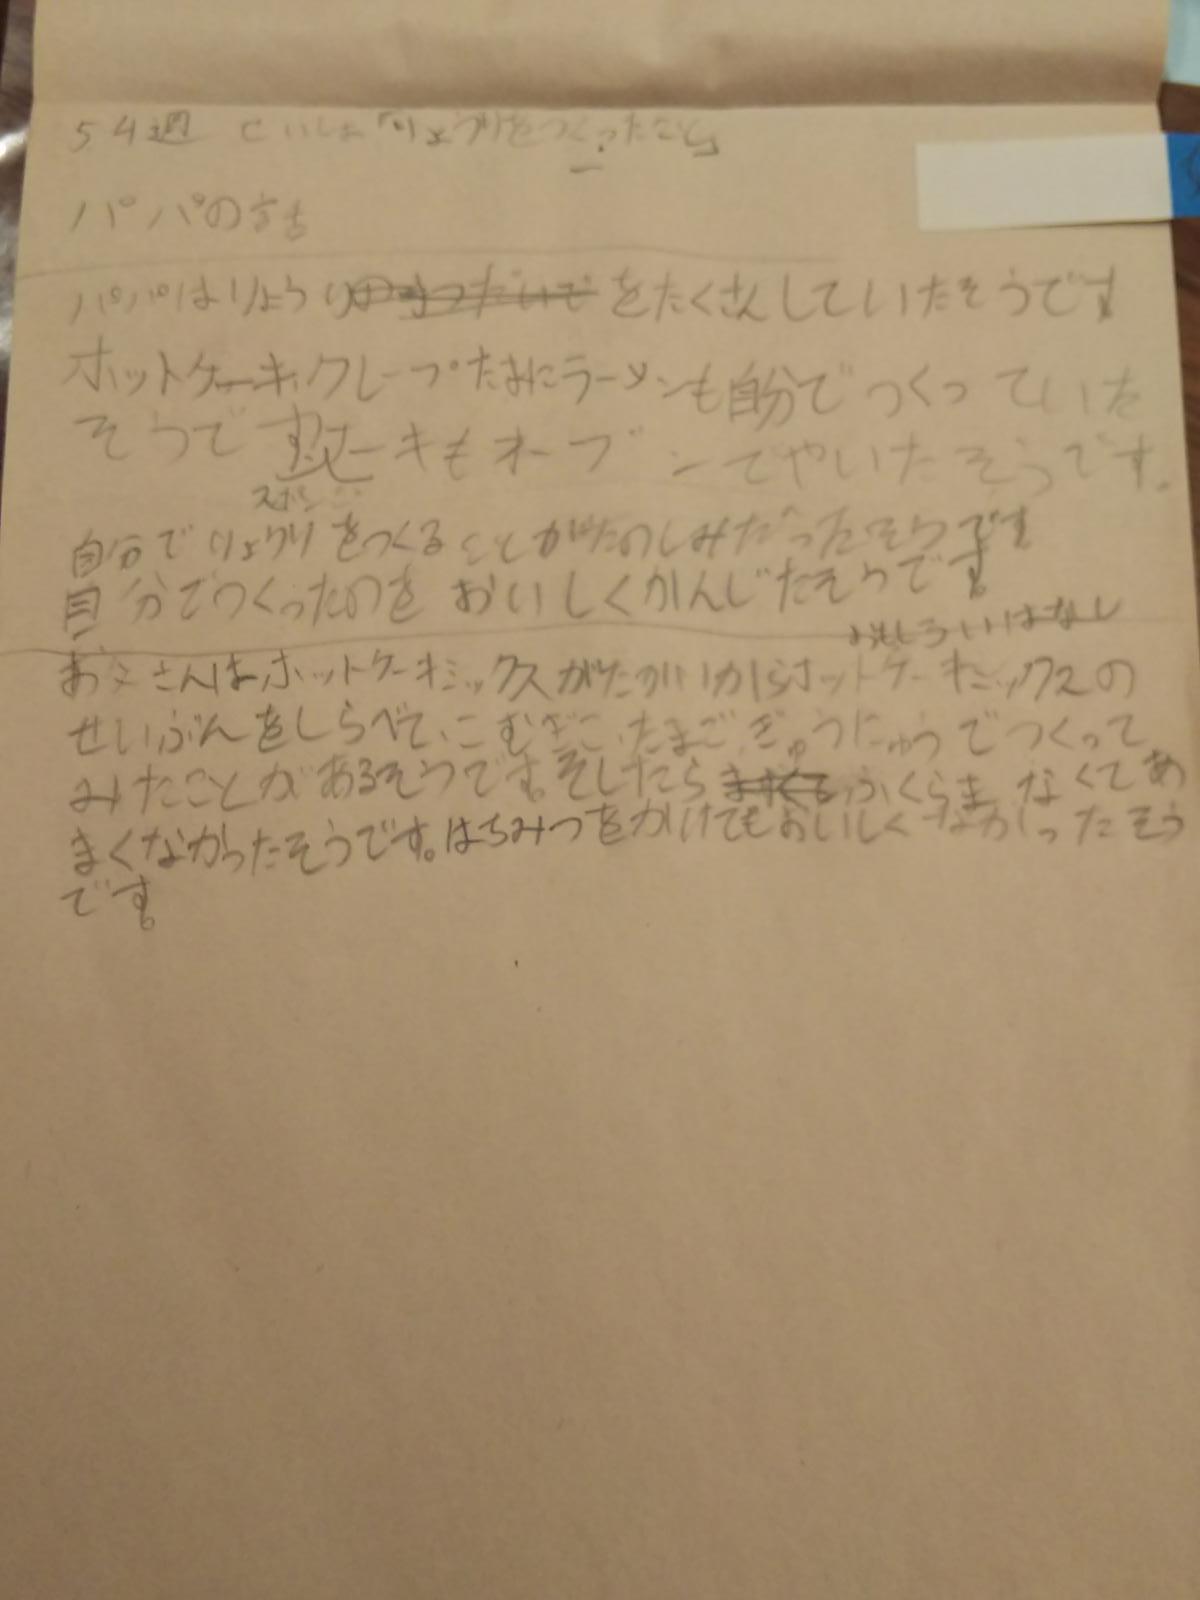 54週 「りょうりをつくったこと」
パパの話
パパはりょうりのてつだいでをたくさんしていたそうです
ホットケーキ、クレープたまにラーメンも自分でつくっていた
そうです ーキもオーブンでやいたそうです。
スポンジ
自分でりょうりをつくることがたのしみだったそうです
自分でつくったのをおいしくかんじたそうです。
おもしろいはなし
お父さんはホットケーキミックスがたかいからホットケーキミックスの
せいぶんをしらべて、こむぎこ、たまご、ぎゅうにゅうでつくって
みたことがあるそうです。そしたらふくらまなくてあ
まくなかったそうです。はちみつをかけてもおいしくなかったそう
です。